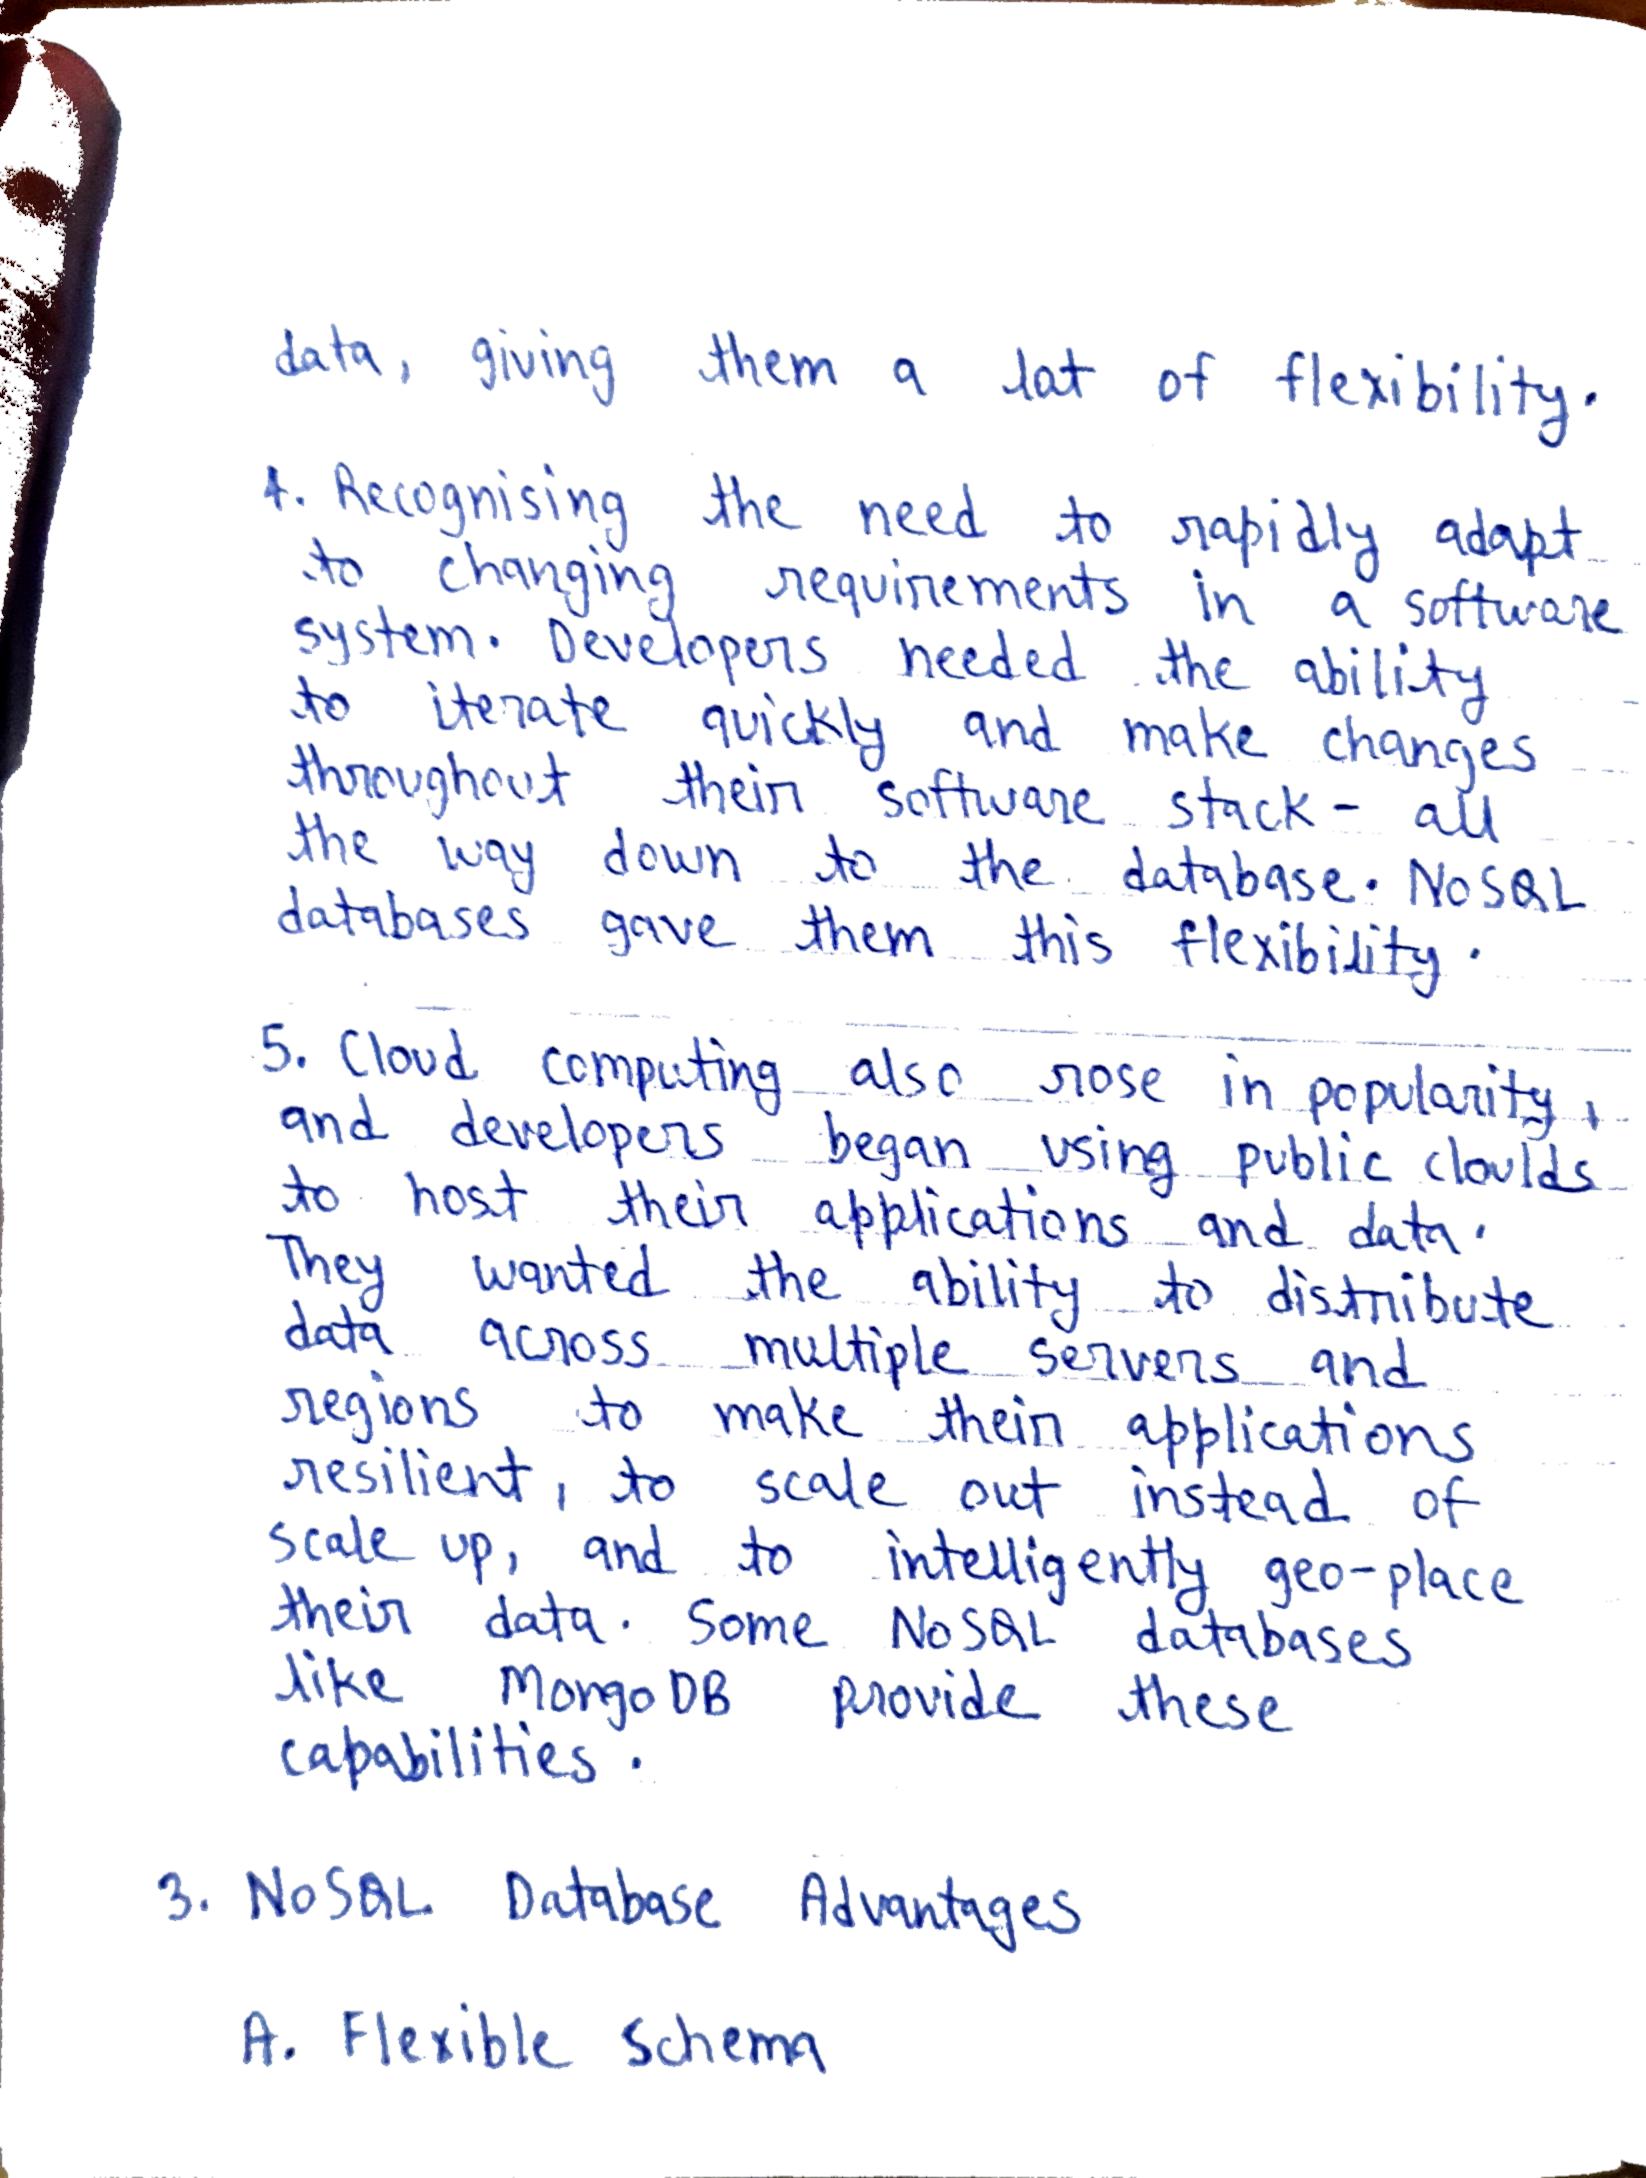 data, giving them a lat of flexibility.
4. Recognising the need to rapidly adapt
to changing requirements in a software
system. Developers needed the ability
to iterate quickly and make changes
throughout their software stack - all
the way down to the database. NoSQL
databases gave them this flexibility.
5. Cloud computing also rose in popularity,
and developers began using public cloulds
to host their applications and data.
They wanted the ability to distribute
data across multiple servers and
regions to make their applications
resilient, to scale out instead of
scale up, and to intelligently geo-place
their data. Some NoSQL databases
like MongoDB provide these
capabilities.
3. NoSQL Database Advantages
A. Flexible Schema